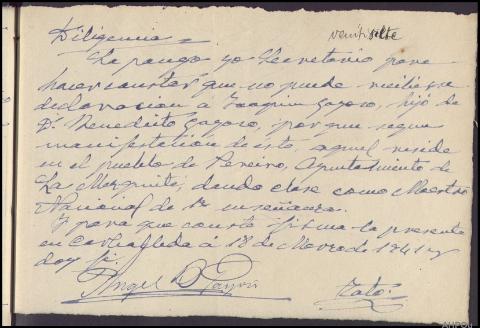 veintisiete
Diligencia.
La pongo yo Secretario para
hacer constar que no puede recibirse
declaracion á Joaquin Gayoso, hijo de
D. Benedicto Gayoso, porque segun
manifestacion de este, aquel reside
en el pueblo de Pereiro, Ayuntamiento de
La Mezquita, dando clase como Maestro
Nacional de 1ª enseñanza.
Y para que conste firma la presente
en á 18 de Marzo de 1941 y
doy fé.
Angel